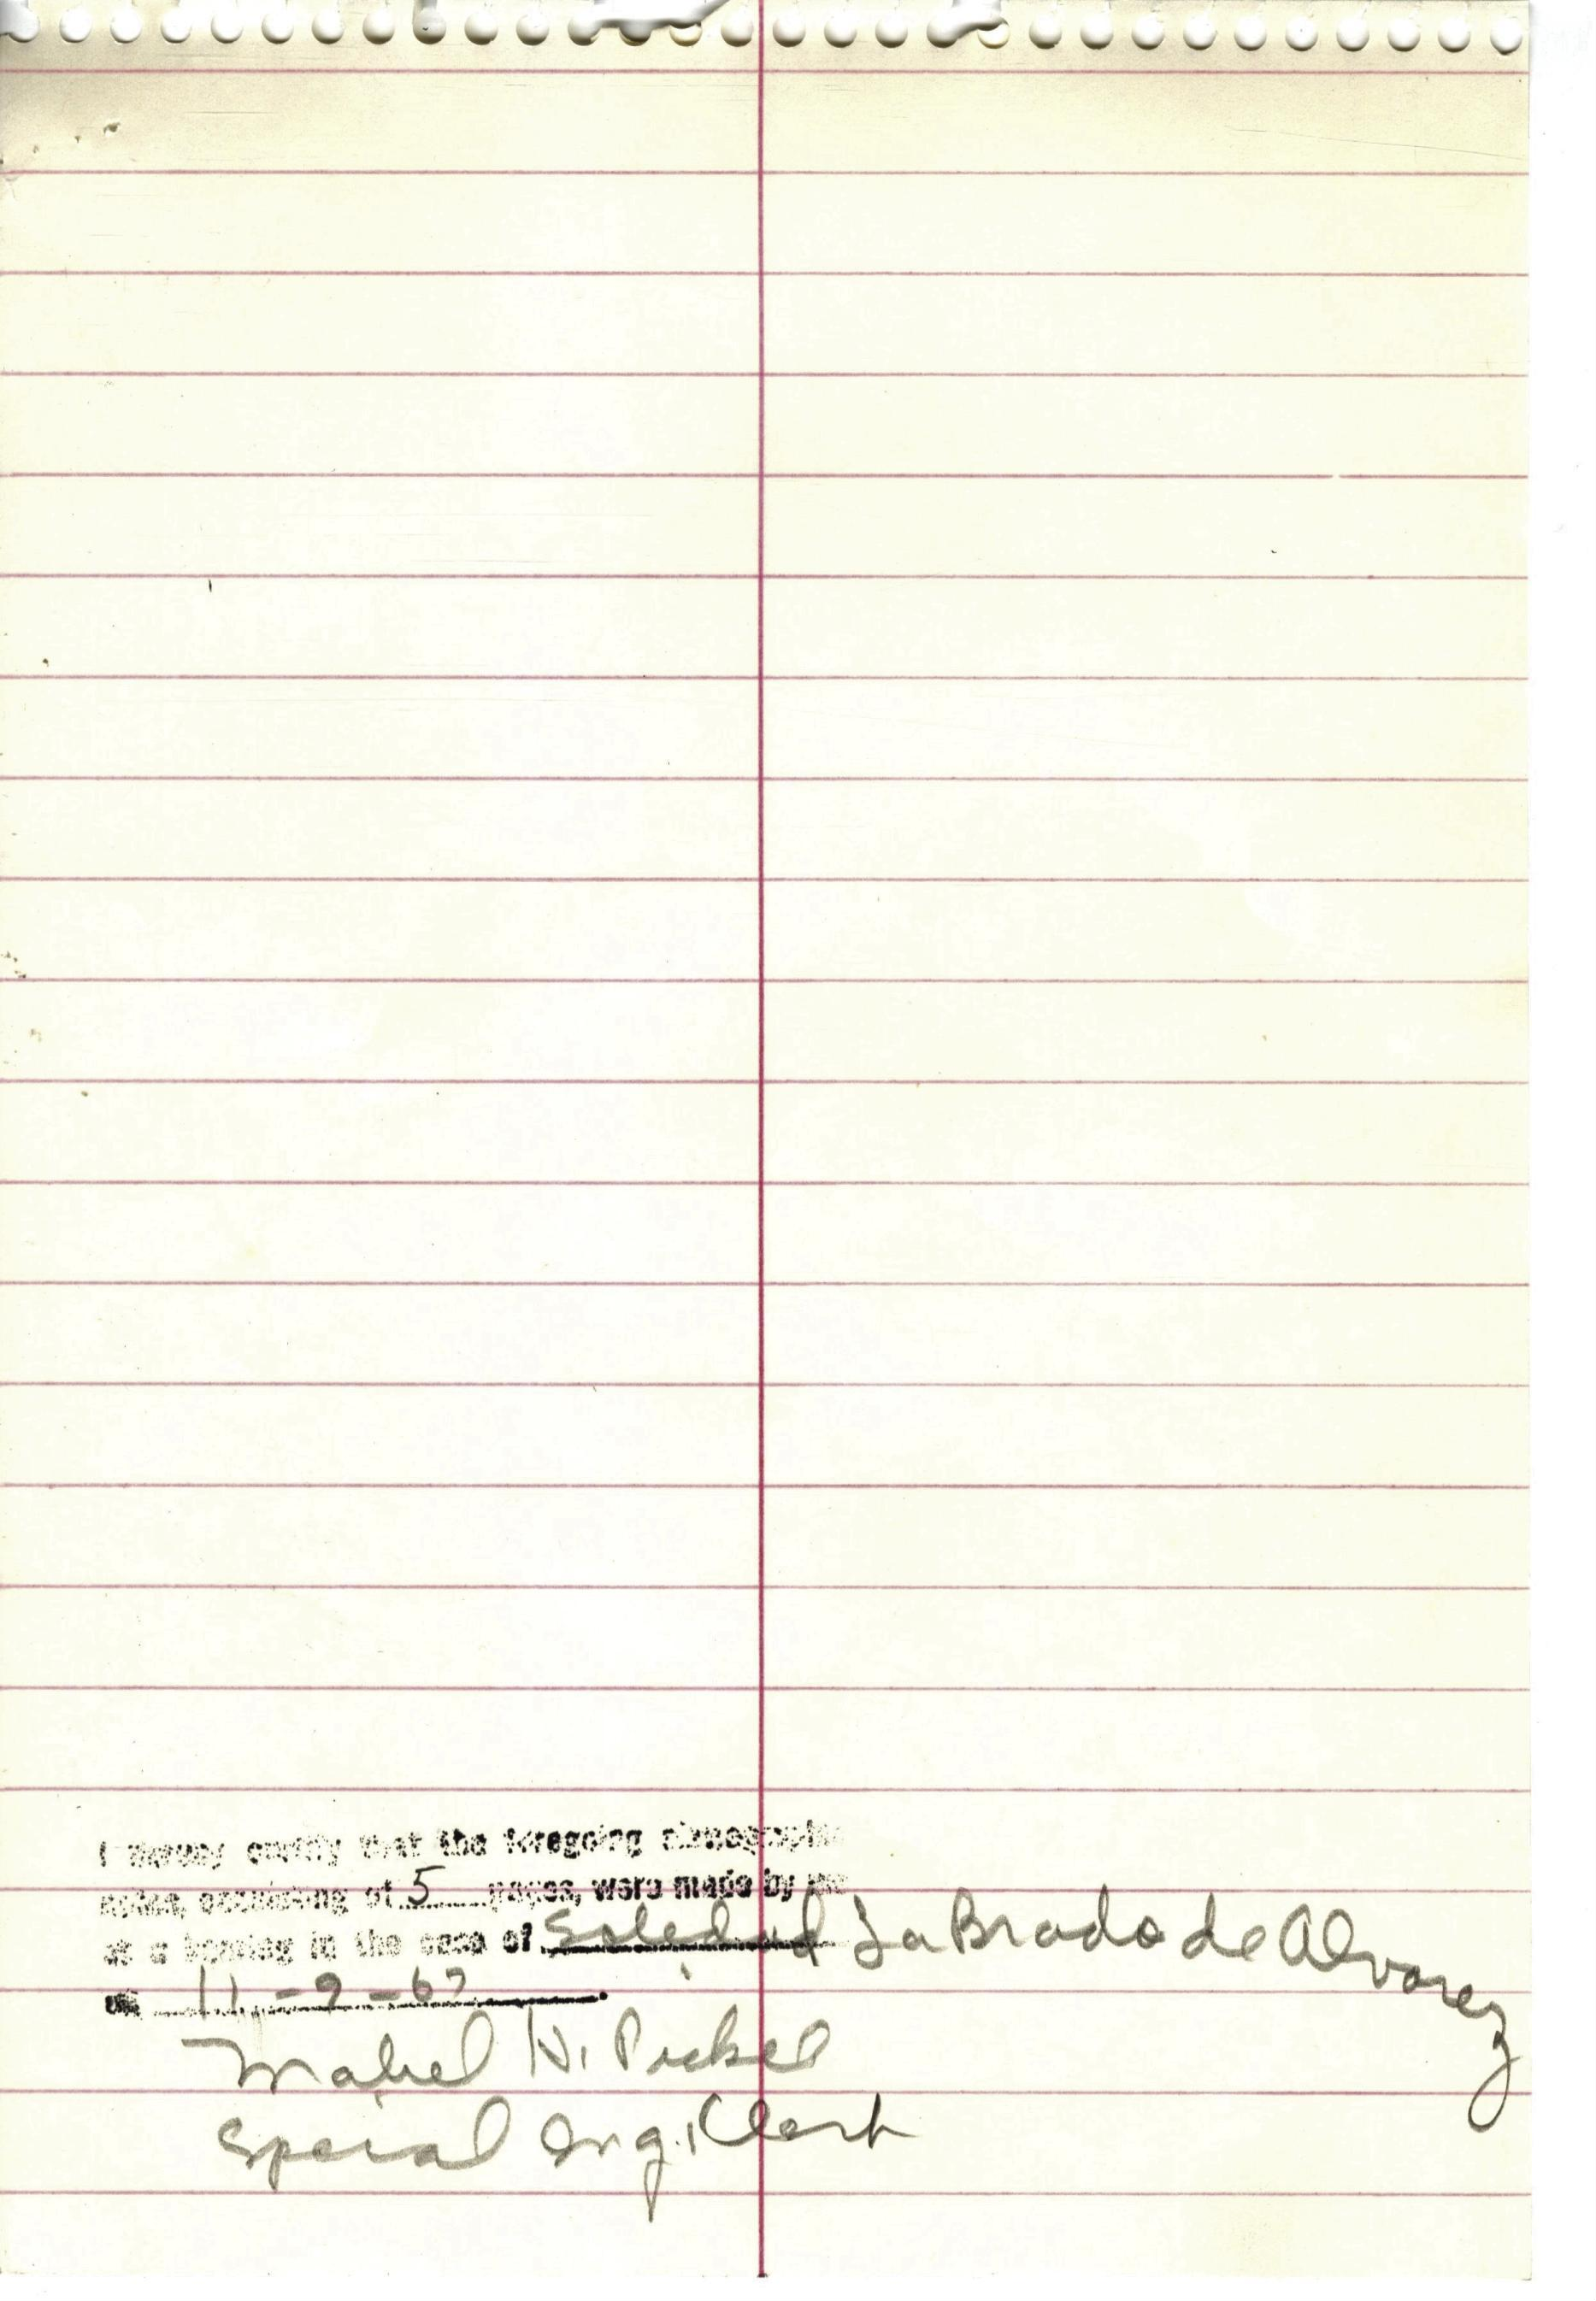 I hereby certify that the foregoing stenographic
notes, consisting of 5 pages, were made by me
at a hearing in the case of Soledad LaBrado de Alvarez
on 11-9-67
Mabel H.
Special Inq. Clerk